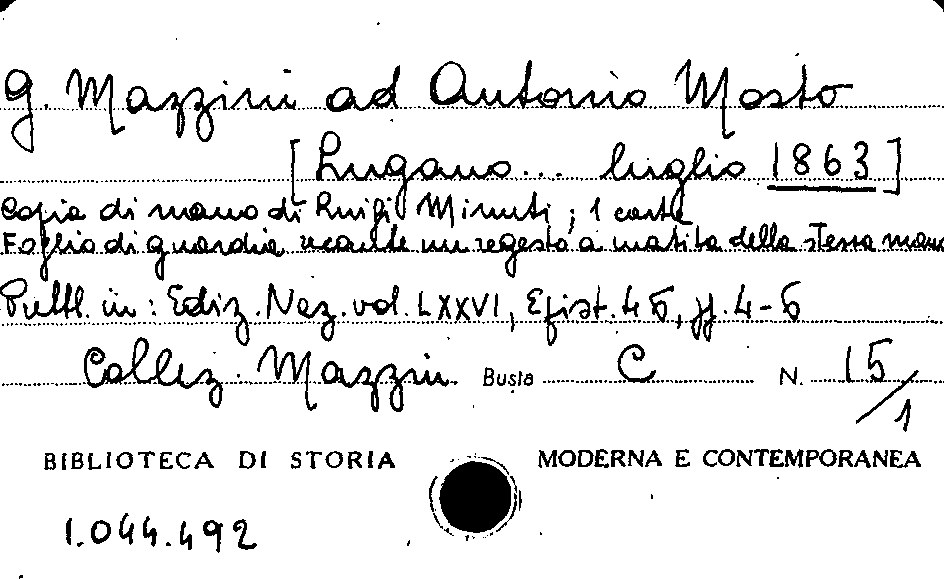 G. Mazzini ad Antonio Mosto
[Lugano... luglio 1863]
Copia di mano di Luigi Minuti; 1 carta
Foglio di guardia recante un regesto a matita della stessa mano
Pubbl. in: Ediz. Naz. vol. LXXVI, Epist. 45, pp. 4-5
Collez. Mazzini Busta C N. 15/1
BIBLIOTECA DI STORIA MODERNA E CONTEMPORANEA
1.044.492